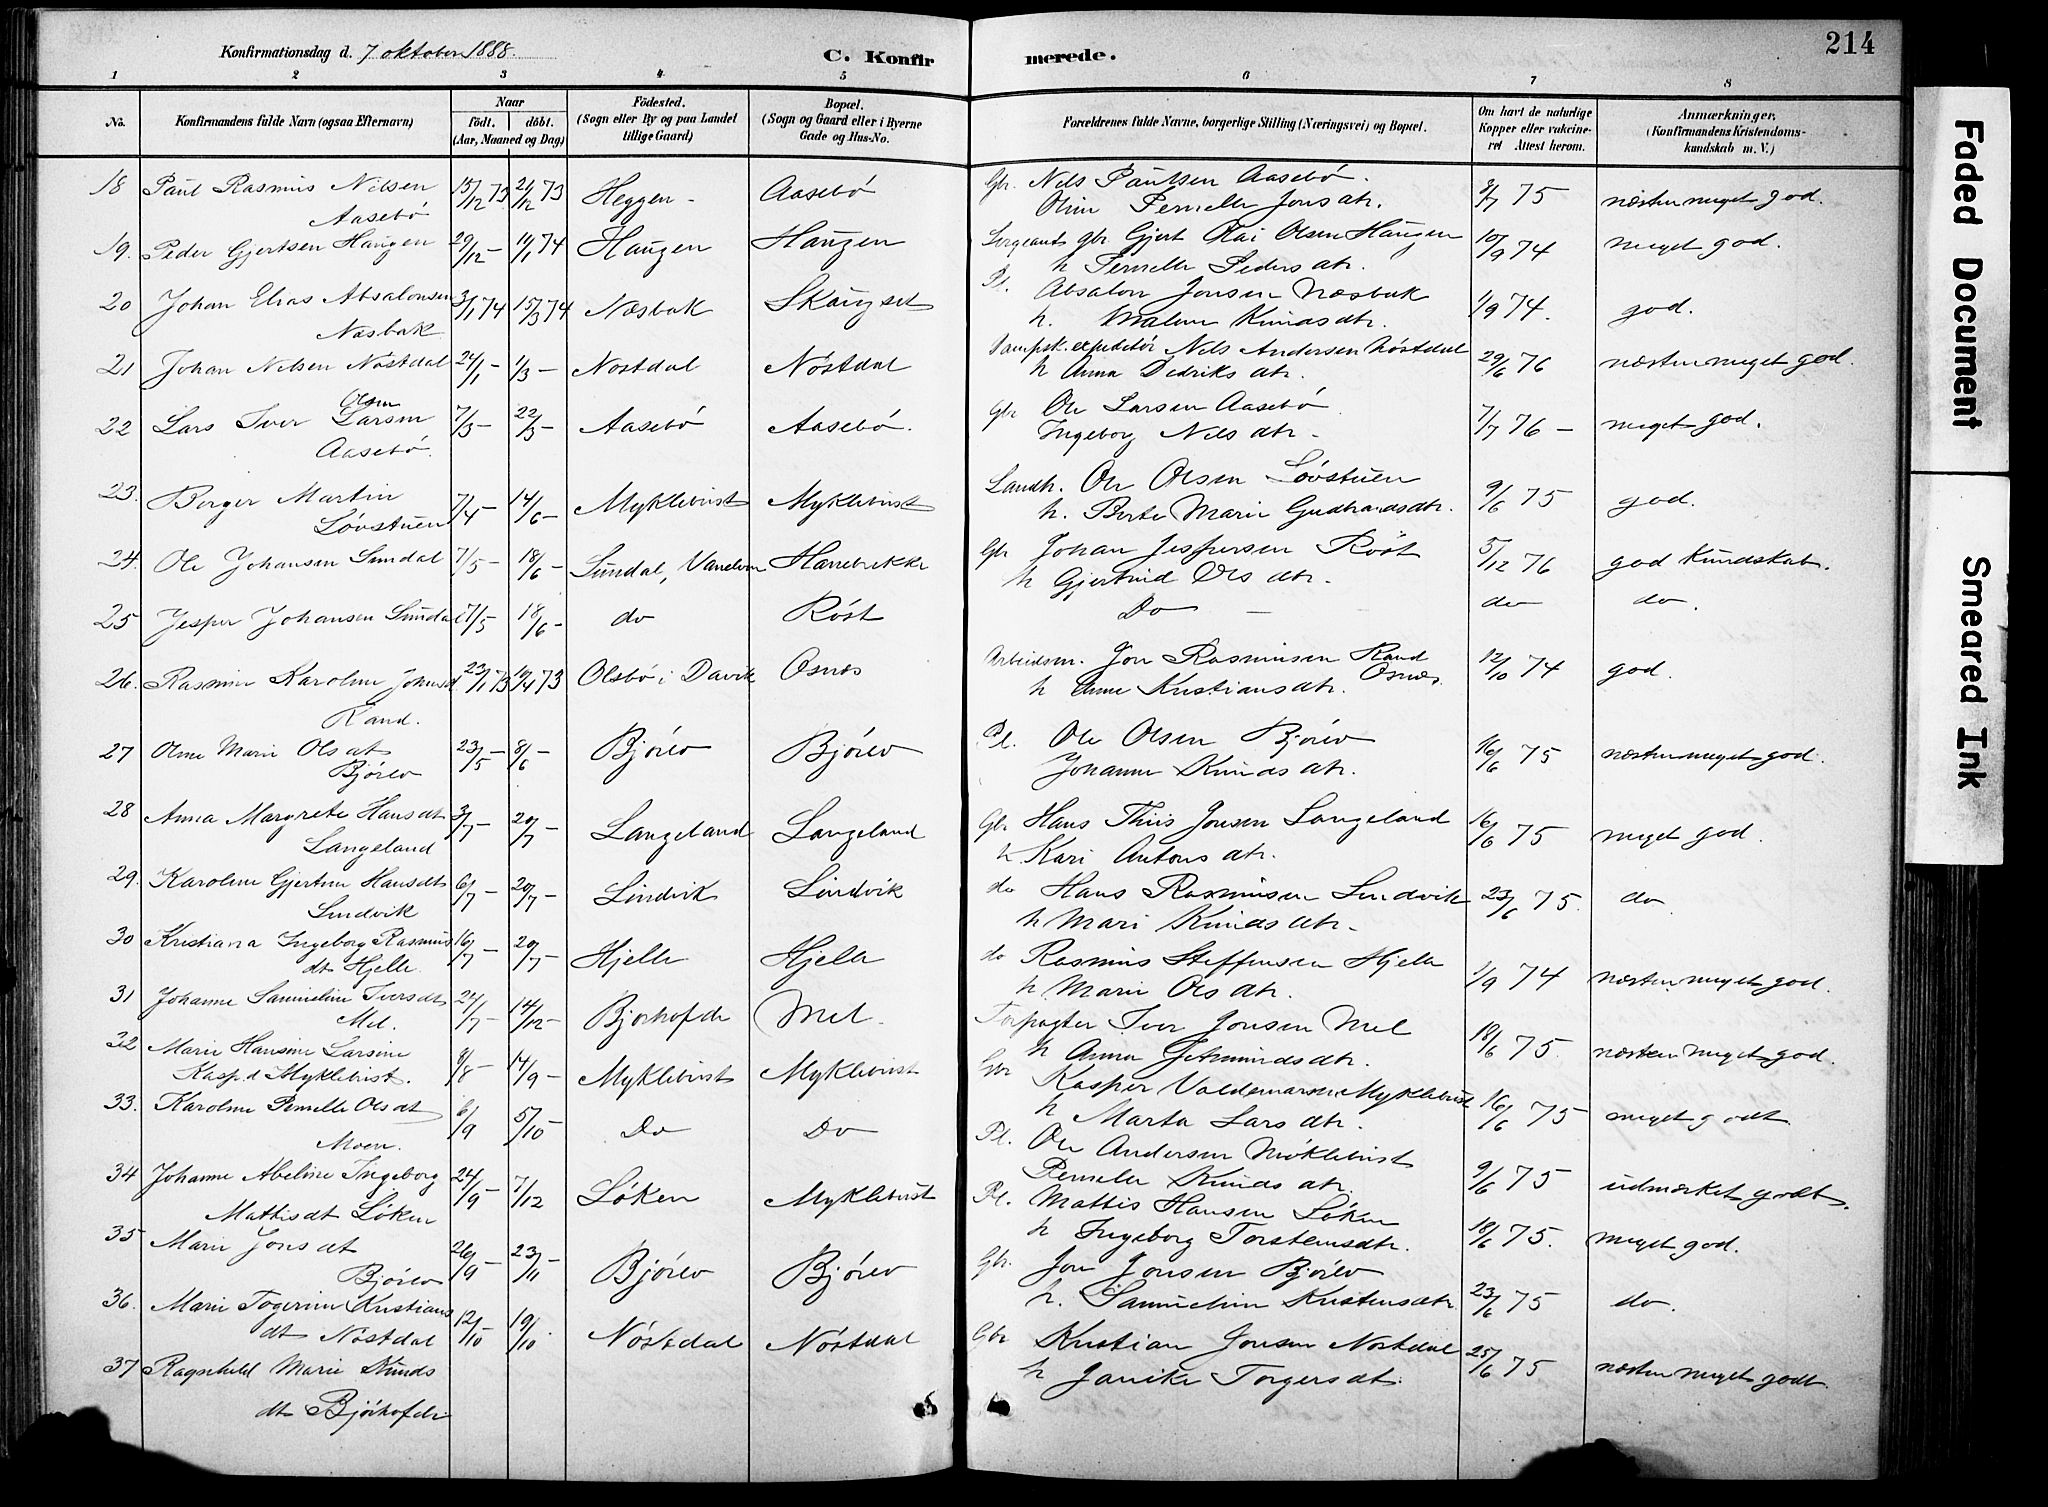 Konfirmationsdag d. 7 oktober 1888.
C. Konfirmerede.
214
1 2 3 4 5 6 7 8
No.
Konfirmandens fulde Navn (ogsaa Efternavn)
Naar
födt. döbt.
(Aar, Maaned og Dag)
Födested.
(Sogn eller By og paa Landet
tillige Gaard)
Bopæl.
(Sogn og Gaard eller i Byerne
Gade og Hus-No.
Forældrenes fulde Navne, borgerlige Stilling (Næringsvei) og Bopæl.
Om havt de naturlige
Kopper eller vakcine-
ret Attest herom.
Anmærkninger,
(Konfirmandens Kristendoms-
kundskab m. V.)
18 Paul Rasmus Nilsen 15/12 73 21/12 73 Heggen - Aasebö Gbr. Nils Paulsen Aasebö. 3/7 75 næsten meget god.
Aasebö Oline Pernelle Jonsdtr.
19. Peder Gjertsen Haugen 29/12 - 11/1 74 Haugen Haugen Sergeant gbr Gjert Kai Olsen Haugen 10/9 74 meget god.
h Pernelle Pedersdtr.
20 Johan Elias Absalonsen 3/1 74 15/3 74 Næsbak Skaugset Pl. Absalon Jonsen Næsbak 1/9 74. god.
Næsbak h. Malene Knudsdtr.
21 Johan Nilsen Nöstdal 24/1 - 1/3 - Nöstdal Nöstdal Dampsk. expeditör Nils Andersen Nöstdal 29/6 76 næsten meget god.
h Anna Didriksdtr.
22 Lars Iver Olsen Larsen 7/3 - 22/3 - Aasebö Aasebö. Gbr Ole Larsen Aasebö 7/7 76 - meget god.
Aasebö. Ingeborg Nilsdtr -
23. Berger Martin 7/4 - 14/6 - Myklebust Myklebust Landh. Ole Olsen Lövstuen 9/6 75 god.
Lövstuen h. Berte Marie Gudbrandsdtr.
24. Ole Johansen Sundal 7/5 - 18/6 - Sundal, Vanelven Gbr Johan Jespersen Röst 5/12 76 god Kundskab.
h Gjertrud Olsdtr.
25 Jesper Johansen Sundal 7/5 18/6 - do Röst Do - do do.
26. Rasmine Karoline Jonsd 23/1 73 19/4 73 Olsbö i Davik Osnes Arbeidsm. Jon Rasmusen Rand 12/10 74 god.
Rand. h Anne Kristiansdtr. Osnes.
27 Oline Marie Olsdt 23/5 - 8/6 - Björlo Björlo Pl. Ole Olsen Björlo 16/6 75 næsten meget god.
Björlo Johanne Knudsdtr.
28 Anna Margrete Hansdt 3/7 - 20/7 - Langeland Langeland Gbr Hans Thiis Jonsen Langeland 16/6 75 meget god.
Langeland h. Kari Antonsdtr.
29. Karoline Gjertine Hansdt 6/7 - 20/7 - Lindvik Lindvik do Hans Rasmusen Lindvik 23/6 75. do
Lindvik h Mari Knudsdtr.
30 Kristiana Ingeborg Rasmus 16/7 - 20/7 - Hjelle Hjelle do Rasmus Steffensen Hjelle 1/9 74 næsten meget god.
dt Hjelle. h Marie Olsdtr.
31 Johanne Samueline Iversdt 24/7 - 14/12 - Björhofde Mel. Forpagter Iver Jonsen Mel 18/6 75. næsten meget god.
Mel. h Anna Jetmundsdtr.
32 Marie Hansine Larsine 8/8 - 14/9 - Myklebust Myklebust Gbr Kasper Valdemarsen Myklebust 16/6 75 meget godt
Kasp.d Myklebust. h Marta Larsdtr.
33. Karoline Pernelle Olsdt 6/9 5/10 Do Do Pl. Ole Andersen Möklebust 9/6 75 udmærket godt.
Moen. Pernelle Knudsdtr
34 Johanne Abeline Ingeborg 24/9 - 7/12 Löken Myklebust Pl. Mattis Hansen Löken 18/6 75. meget god.
Mattisdt Löken h Ingeborg Torsteinsdtr.
35 Marie Jonsdt 26/9 23/11 Björlo Björlo Gbr. Jon Jonsen Björlo 23/6 75 do.
Björlo h. Samueline Kristensdtr
36. Marie Togerine Kristians 12/10 19/10 Nöstdal Nöstdal Gbr Kristian Jonsen Nöstdal 25/6 75 næsten meget godt.
dt Nöstdal h Janike Torgersdt.
37 Ragnhild Marie Knuds
dt Björhofde
Faded Document
Smeared Ink